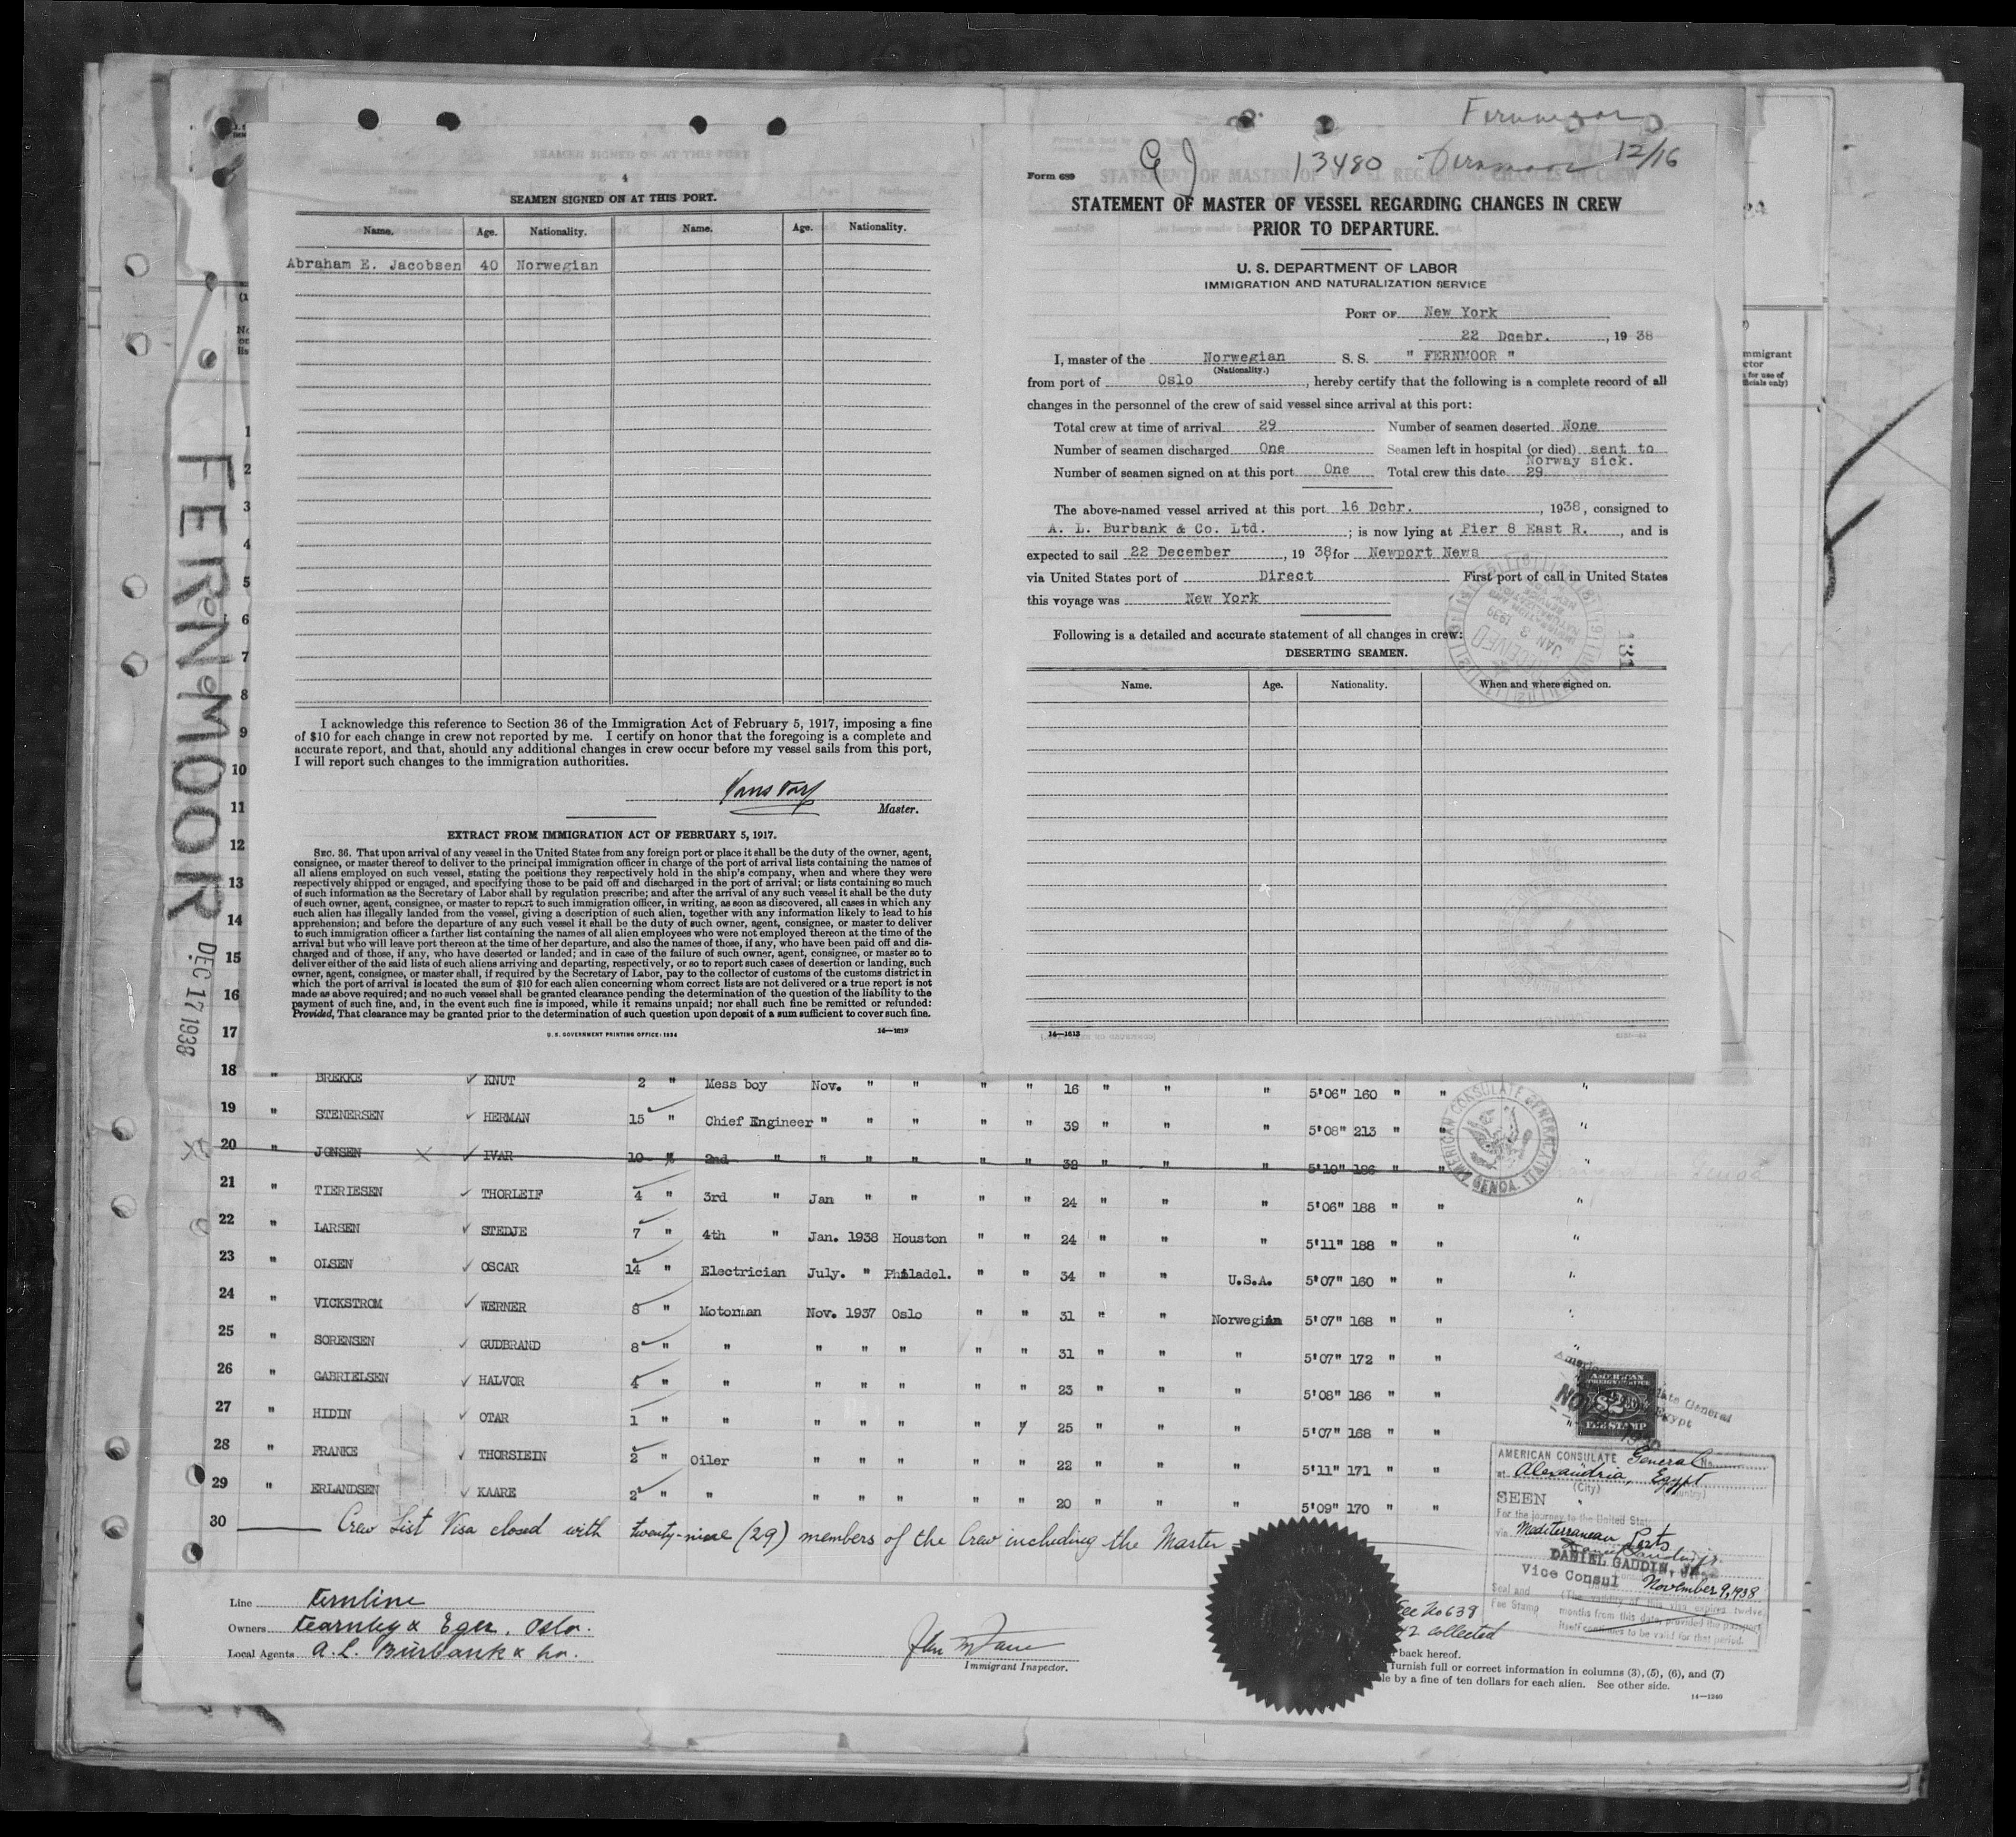 FERNMOOR
DEC 17 1938
4
SEAMEN SIGNED ON AT THIS PORT.
Name. Age. Nationality. Name. Age. Nationality.
Abraham E. Jacobsen 40 Norwegian
I acknowledge this reference to Section 36 of the Immigration Act of February 5, 1917, imposing a fine
of $10 for each change in crew not reported by me. I certify on honor that the foregoing is a complete and
accurate report, and that, should any additional changes in crew occur before my vessel sails from this port,
I will report such changes to the immigration authorities.
Master.
EXTRACT FROM IMMIGRATION ACT OF FEBRUARY 5, 1917.
SEC. 36. That upon arrival of any vessel in the United States from any foreign port or place it shall be the duty of the owner, agent,
consignee, or master thereof to deliver to the principal immigration officer in charge of the port of arrival lists containing the names of
all aliens employed on such vessel, stating the positions they respectively hold in the ship's company, when and where they were
respectively shipped or engaged, and specifying those to be paid off and discharged in the port of arrival; or lists containing so much
of such information as the Secretary of Labor shall by regulation prescribe; and after the arrival of any such vessel it shall be the duty
of such owner, agent, consignee, or master to report to such immigration officer, in writing, as soon as discovered, all cases in which any
such alien has illegally landed from the vessel, giving a description of such alien, together with any information likely to lead to his
apprehension; and before the departure of any such vessel it shall be the duty of such owner, agent, consignee, or master to deliver
to such immigration officer a further list containing the names of all alien employees who were not employed thereon at the time of the
arrival but who will leave port thereon at the time of her departure, and also the names of those, if any, who have been paid off and dis-
charged and of those, if any, who have deserted or landed; and in case of the failure of such owner, agent, consignee, or master so to
deliver either of the said lists of such aliens arriving and departing, respectively, or so to report such cases of desertion or landing, such
owner, agent, consignee, or master shall, if required by the Secretary of Labor, pay to the collector of customs of the customs district in
which the port of arrival is located the sum of $10 for each alien concerning whom correct lists are not delivered or a true report is not
made as above required; and no such vessel shall be granted clearance pending the determination of the question of the liability to the
payment of such fine, and, in the event such fine is imposed, while it remains unpaid; nor shall such fine be remitted or refunded:
Provided, That clearance may be granted prior to the determination of such question upon deposit of a sum sufficient to cover such fine.
U. S. GOVERNMENT PRINTING OFFICE: 1934 14—1613
Fernmoor
13480 Fernmoor 12/16
Form 689
STATEMENT OF MASTER OF VESSEL REGARDING CHANGES IN CREW
PRIOR TO DEPARTURE.
U. S. DEPARTMENT OF LABOR
IMMIGRATION AND NATURALIZATION SERVICE
PORT OF New York
22 Dcebr., 1938
I, master of the Norwegian S. S. " FERNMOOR "
(Nationality.)
from port of Oslo, hereby certify that the following is a complete record of all
changes in the personnel of the crew of said vessel since arrival at this port:
Total crew at time of arrival 29 Number of seamen deserted None
Number of seamen discharged One Seamen left in hospital (or died) sent to
Norway sick.
Number of seamen signed on at this port One Total crew this date 29
The above-named vessel arrived at this port 16 Dcbr., 1938, consigned to
A. L. Burbank & Co. Ltd.; is now lying at Pier 8 East R., and is
expected to sail 22 December, 1938, for Newport News
via United States port of Direct First port of call in United States
this voyage was New York
Following is a detailed and accurate statement of all changes in crew:
RECEIVED JAN 3 1939
131
DESERTING SEAMEN.
Name. Age. Nationality. When and where signed on.
14—1613
mmigrant
ctor
1
2
3
4
5
6
7
8
9
10
11
12
13
14
15
16
17
18 " BREKKE KNUT 2 " Mess boy Nov. " " " " 16 " " " 5'06" 160 " " "
19 " STENERSEN HERMAN 15 " Chief Engineer " " " " " 39 " " " 5'08" 213 " " "
20 " JONSEN IVAR 10 " 2nd " " " " " " 32 " " " 5'10" 186 " " "
21 " TIERIESEN THORLEIF 4 " 3rd " Jan " " " " 24 " " " 5'06" 188 " " "
22 " LARSEN STEDJE 7 " 4th " Jan. 1938 Houston " " 24 " " " 5'11" 188 " " "
23 " OLSEN OSCAR 14 " Electrician July. " Philadel. " " 34 " " U.S.A. 5'07" 160 " " "
24 " VICKSTROM WERNER 8 " Motorman Nov. 1937 Oslo " " 31 " " Norwegian 5'07" 168 " " "
25 " SORENSEN GUDBRAND 8 " " " " " " " 31 " " " 5'07" 172 " " "
26 " GABRIELSEN HALVOR 4 " " " " " " " 23 " " " 5'08" 186 " "
27 " HIDIN OTAR 1 " " " " " " " 25 " " " 5'07" 168 " " "
28 " FRANKE THORSTEIN 2 " Oiler " " " " " 22 " " " 5'11" 171 " "
29 " ERLANDSEN KAARE 2 " " " " " " " 20 " " " 5'09" 170 " "
30 Crew List Visa closed with twenty-nine (29) members of the Crew including the Master
AMERICAN CONSULATE GENERAL GENOA, ITALY
AMERICAN
FOREIGN SERVICE
$2.00
FEE STAMP
AMERICAN CONSULATE General No.
at Alexandria, Egypt
(City) (Country)
SEEN
For the journey to the United States
via Mediterranean Ports
DANIEL GAUDIN, JR.
Vice Consul November 9, 1938
Seal and
Fee Stamp
(The validity of this visa expires twelve
months from this date, provided the passport
itself continues to be valid for that period.
Fee No 639
$2 collected
Line Fernline
Owners Fearnley & Eger, Oslo.
Local Agents A. L. Burbank & Co.
Immigrant Inspector.
back hereof.
furnish full or correct information in columns (3), (5), (6), and (7)
le by a fine of ten dollars for each alien. See other side.
14—1240